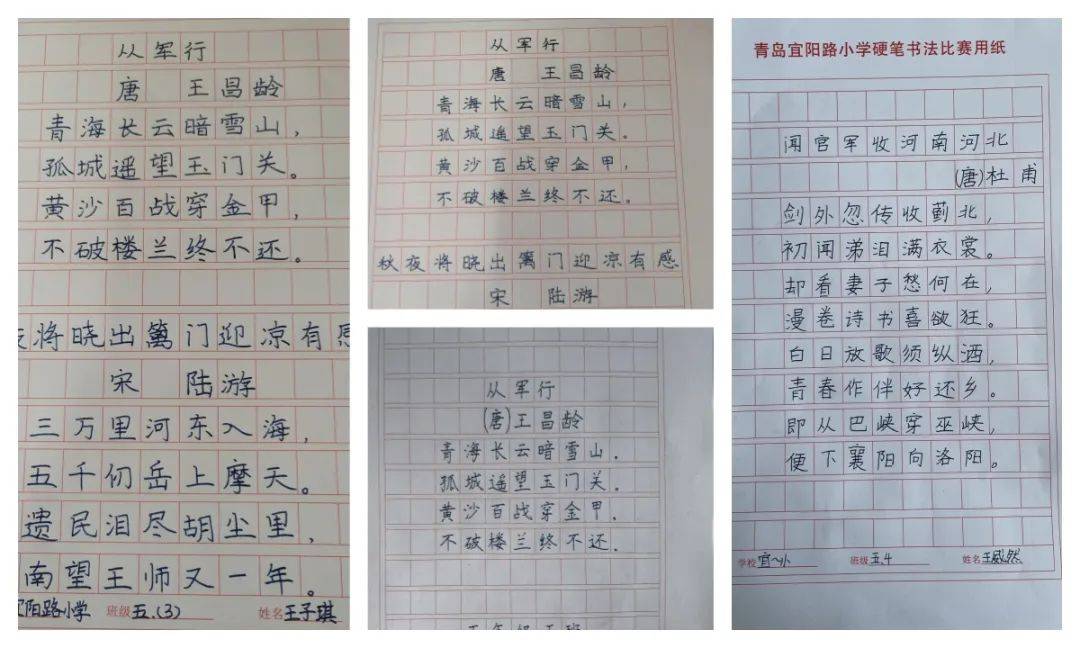 从军行
唐 王昌龄
青海长云暗雪山，
孤城遥望玉门关。
黄沙百战穿金甲，
不破楼兰终不还。
将晓出篱门迎凉有
宋 陆游
三万里河东入海，
五千仞岳上摩天。
遗民泪尽胡尘里，
南望王师又一年。
阳路小学 班级 五.(3) 姓名 王子琪
从军行
唐 王昌龄
青海长云暗雪山，
孤城遥望玉门关。
黄沙百战穿金甲，
不破楼兰终不还。
秋夜将晓出篱门迎凉有感
宋 陆游
从军行
(唐)王昌龄
青海长云暗雪山.
孤城遥望玉门关.
黄沙百战穿金甲.
不破楼兰终不还.
青岛宜阳路小学硬笔书法比赛用纸
闻官军收河南河北
(唐)杜甫
剑外忽传收蓟北，
初闻涕泪满衣裳。
却看妻子愁何在，
漫卷诗书喜欲狂。
白日放歌须纵酒，
青春作伴好还乡。
即从巴峡穿巫峡，
便下襄阳向洛阳。
学校 宜小 班级 五.4 姓名 王威然